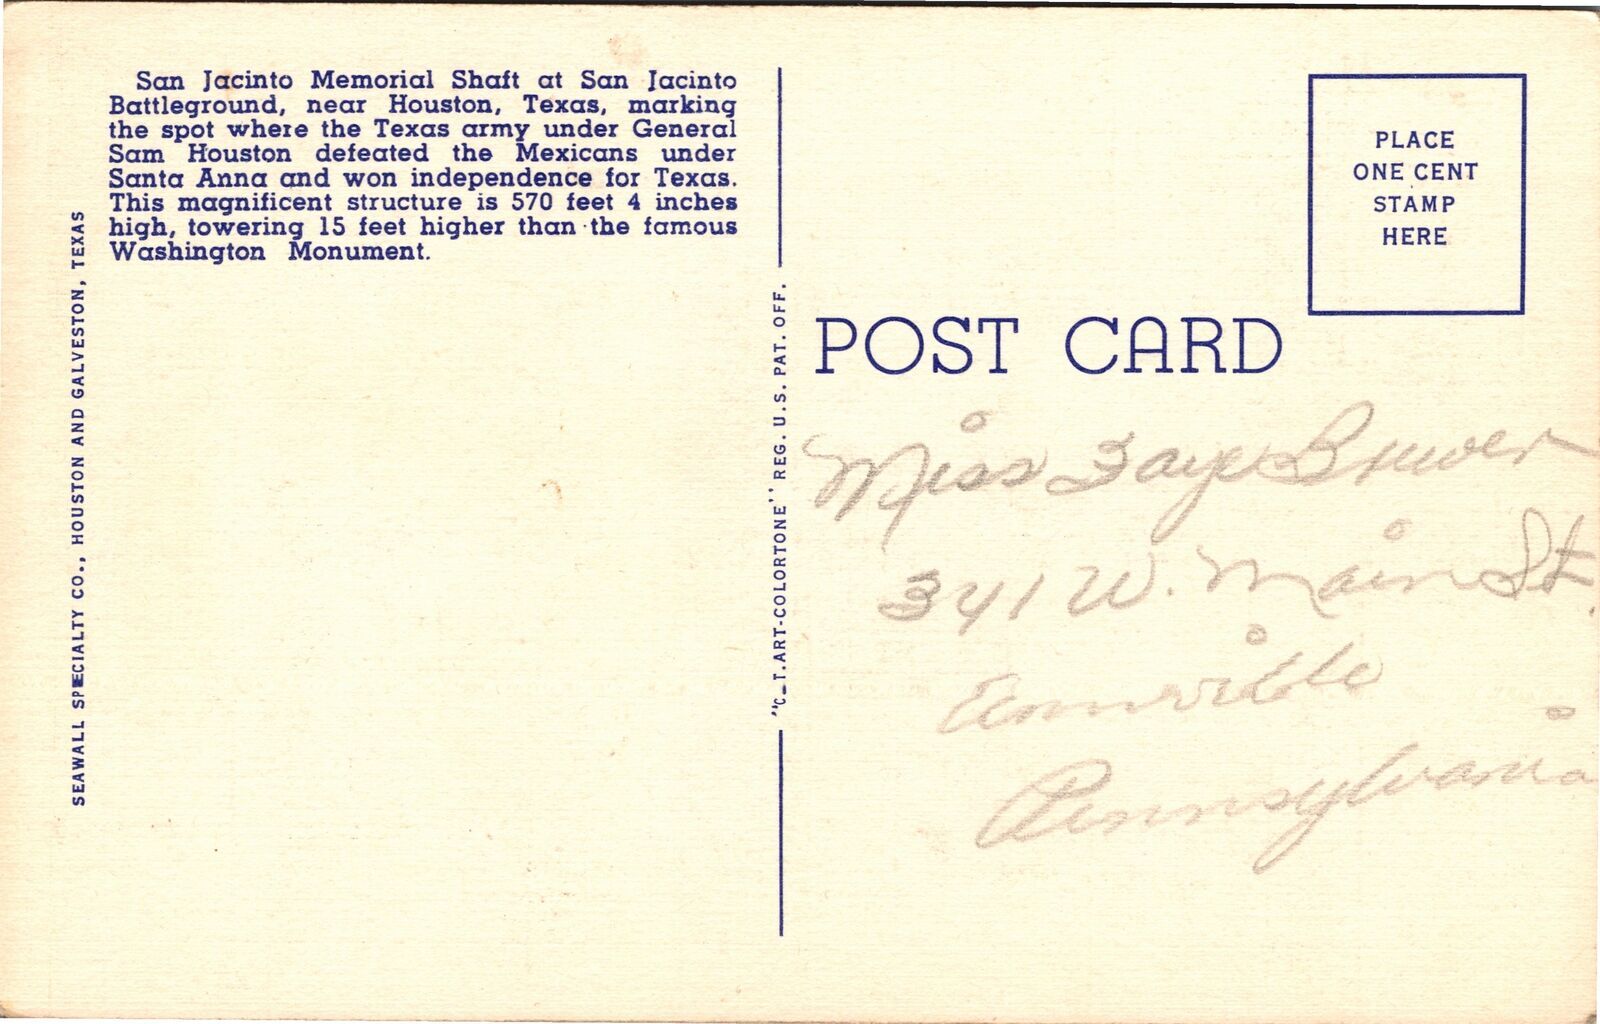 San Jacinto Memorial Shaft at San Jacinto
Battleground, near Houston, Texas, marking
the spot where the Texas army under General
Sam Houston defeated the Mexicans under
Santa Anna and won independence for Texas.
This magnificent structure is 570 feet 4 inches
high, towering 15 feet higher than the famous
Washington Monument.
SEAWALL SPECIALTY CO., HOUSTON AND GALVESTON, TEXAS
"C. T. ART-COLORTONE" REG. U.S. PAT. OFF.
PLACE
ONE CENT
STAMP
HERE
POST CARD
Miss Faye
341 W. Main St.
Annville
Pennsylvania